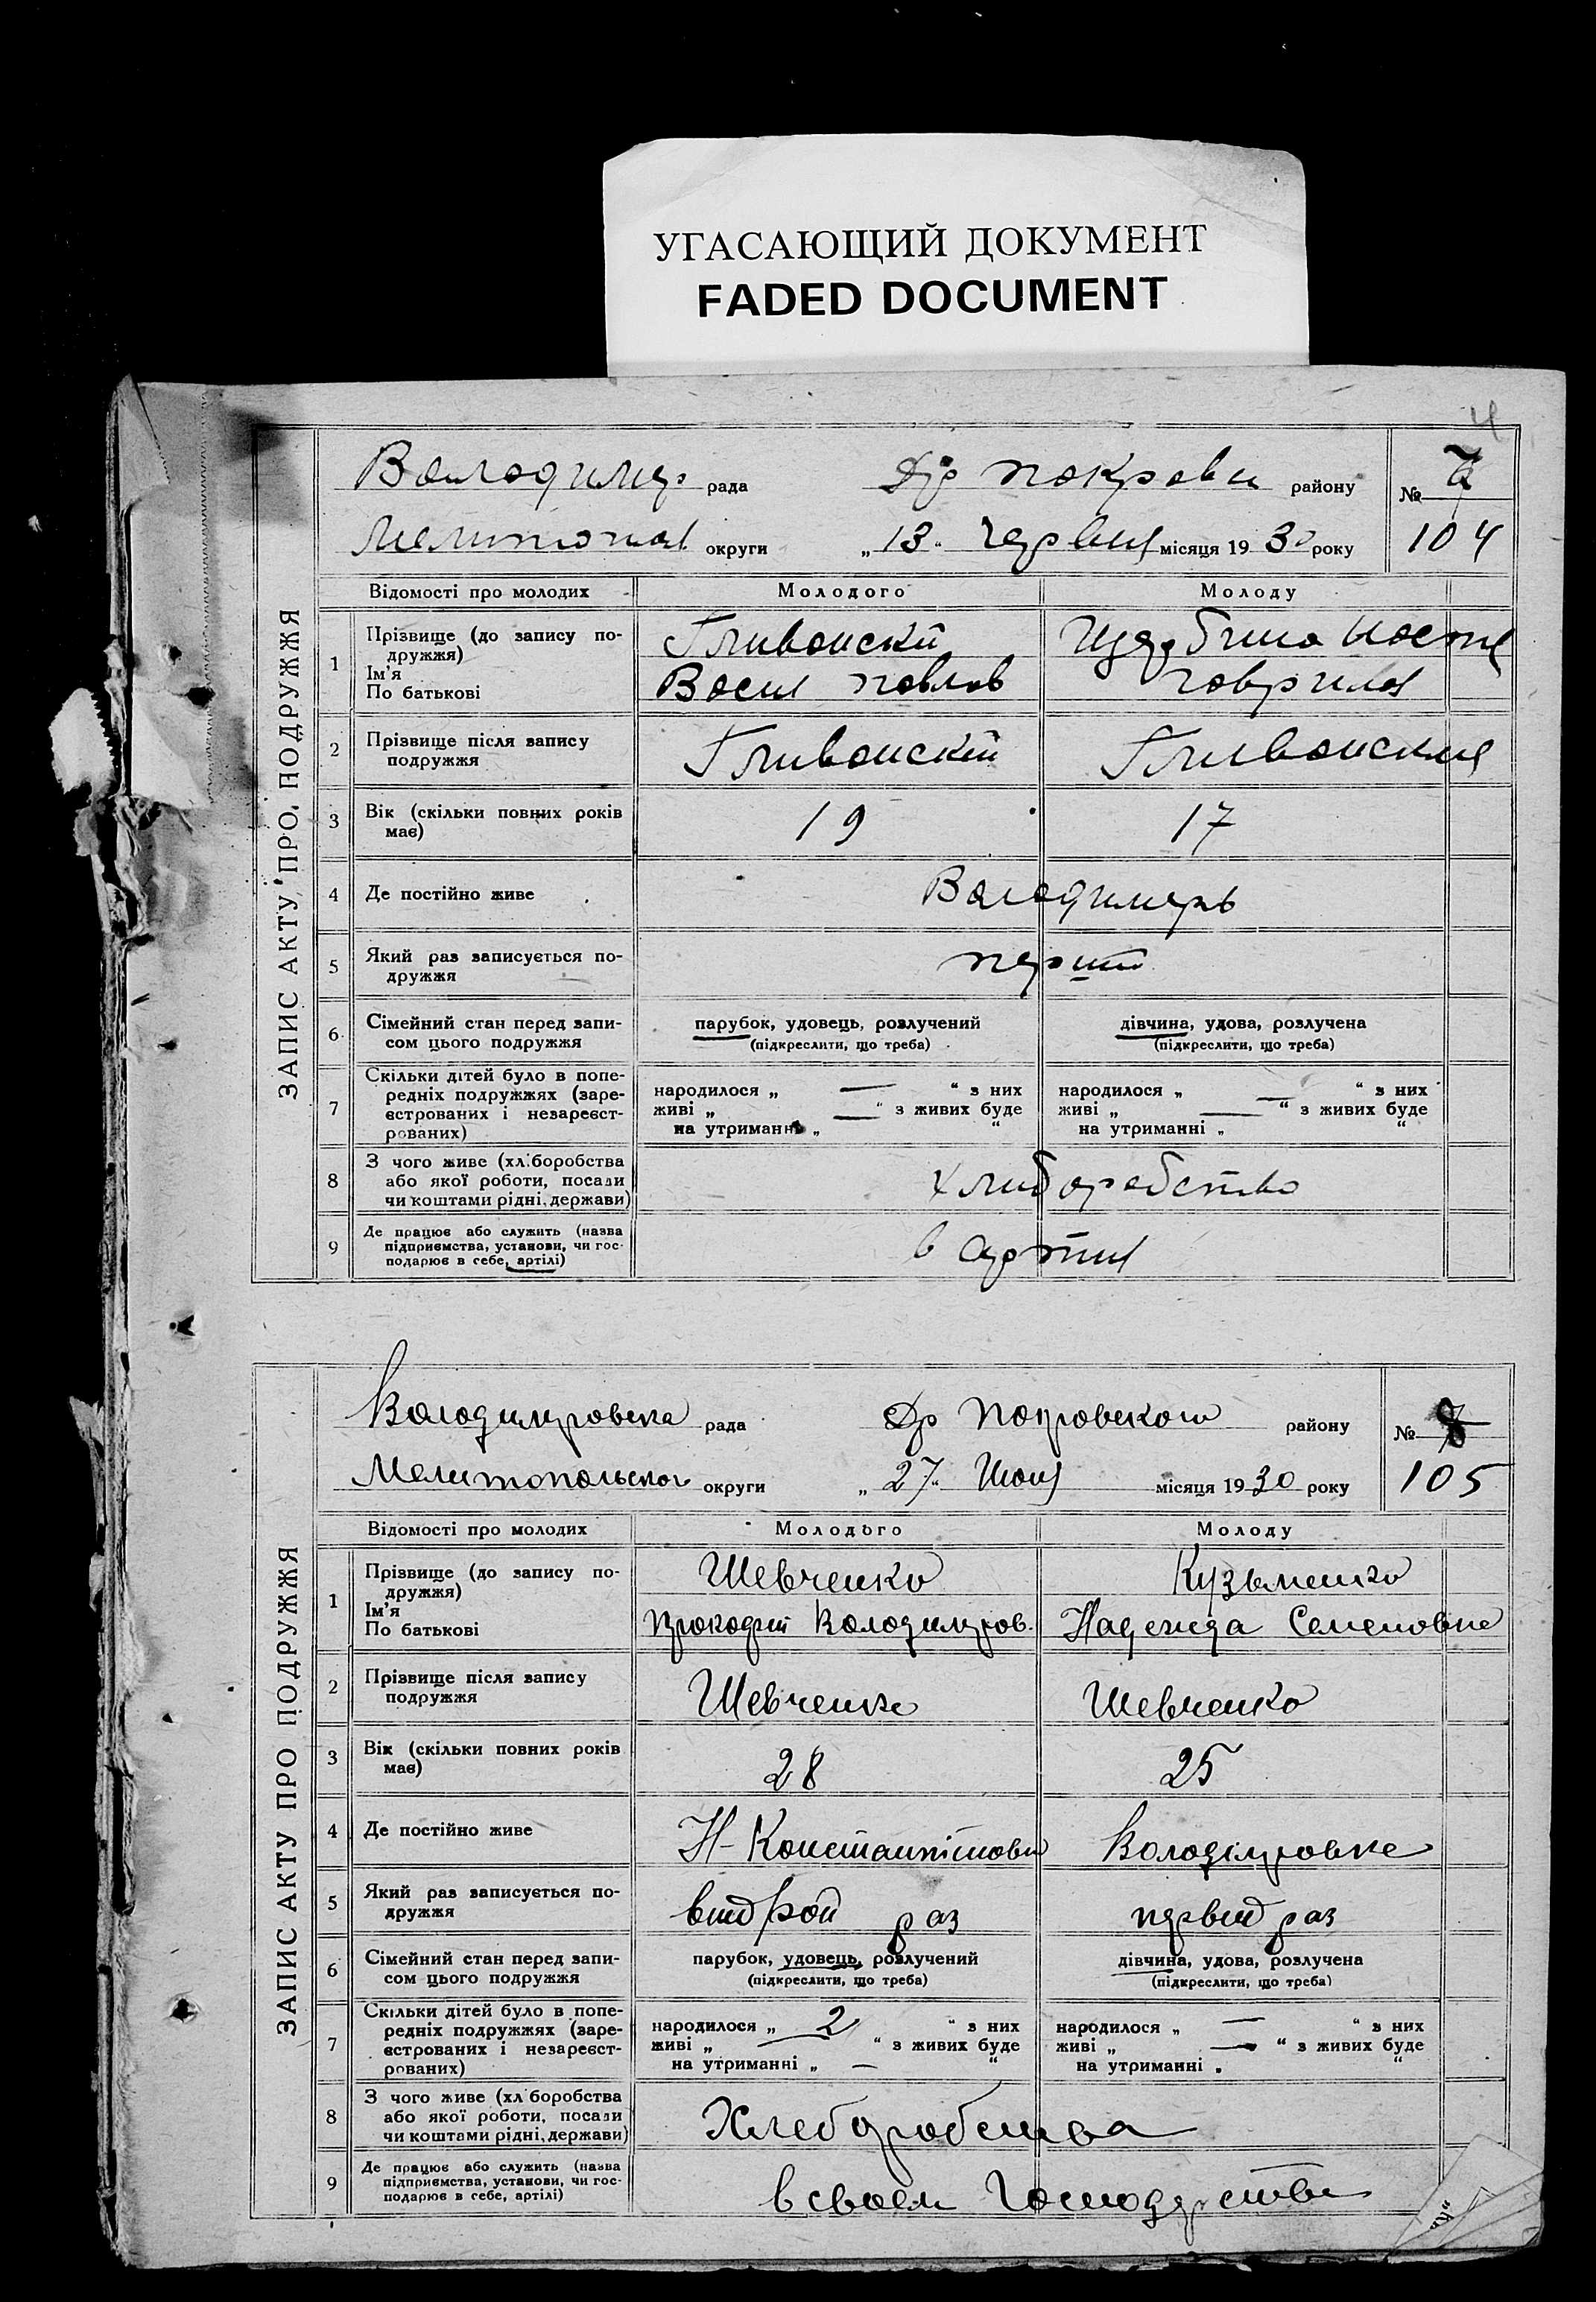 УГАСАЮЩИЙ ДОКУМЕНТ
FADED DOCUMENT
4
ЗАПИС АКТУ ПРО ПОДРУЖЖЯ
Володимир рада Др покровск району № 7
Мелитопол. округи „13“ Червня місяця 1930 року 104
Відомості про молодих Молодого Молоду
1 Прізвище (до запису по- Гливонский Щербина Настя
дружжя)
Ім'я Васил Павлов Гаврилов
По батькові
2 Прізвище після запису Гливонский Гливонския
подружжя
3 Вік (скільки повних років 19 17
має)
4 Де постійно живе Володимерв
5 Який раз записується по- перший
дружжя
6 Сімейний стан перед запи- парубок, удовець, розлучений дівчина, удова, розлучена
сом цього подружжя (підкреслити, що треба) (підкреслити, що треба)
7 Скільки дітей було в попе- народилося „ — “ з них народилося „ — “ з них
редніх подружжях (заре- живі „ — “ з живих буде живі „ — “ з живих буде
єстрованих і незареєст- на утриманні „ “ на утриманні „ “
рованих)
8 З чого живе (хліборобства хлиборобство
або якої роботи, посади
чи коштами рідні, держави)
9 Де працює або служить (назва в артил
підприємства, установи, чи гос-
подарює в себе, артілі)
ЗАПИС АКТУ ПРО ПОДРУЖЖЯ
Володимировска рада Др Покровского району № 8
Мелитопольског округи „27“ Июня місяця 1930 року 105
Відомості про молодих Молодого Молоду
1 Прізвище (до запису по- Шевченко Кузьменко
дружжя)
Ім'я Прокофий Володимиров. Надежда Семеновна
По батькові
2 Прізвище після запису Шевченко Шевченко
подружжя
3 Вік (скільки повних років 28 25
має)
4 Де постійно живе Н-Константиновк Володимировке
5 Який раз записується по- второй раз первий раз
дружжя
6 Сімейний стан перед запи- парубок, удовець, розлучений дівчина, удова, розлучена
сом цього подружжя (підкреслити, що треба) (підкреслити, що треба)
7 Скільки дітей було в попе- народилося „ 2 “ з них народилося „ — “ з них
редніх подружжях (заре- живі „ — “ з живих буде живі „ — “ з живих буде
єстрованих і незареєст- на утриманні „ — “ на утриманні „ “
рованих)
8 З чого живе (хліборобства Хлеборобства
або якої роботи, посади
чи коштами рідні, держави)
9 Де працює або служить (назва в своем Господарстве
підприємства, установи, чи гос-
подарює в себе, артілі)